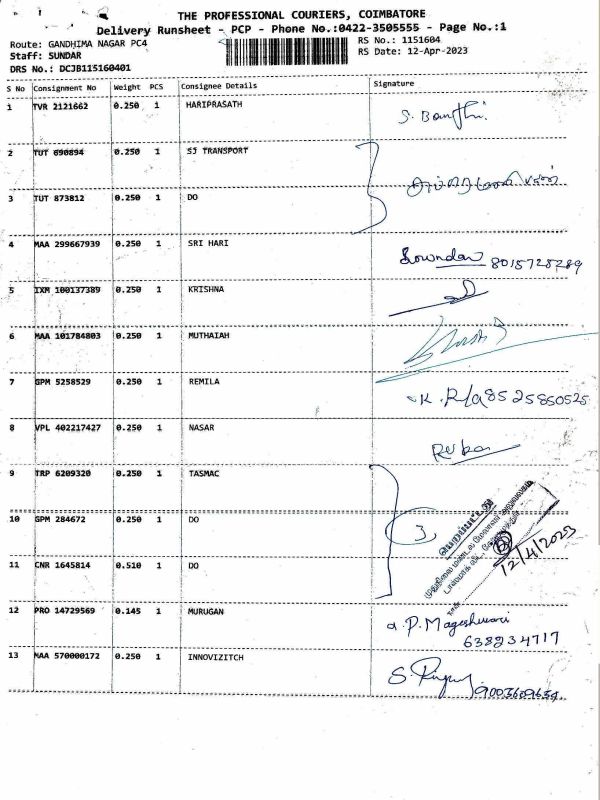 THE PROFESSIONAL COURIERS, COIMBATORE
Delivery Runsheet - PCP - Phone No.:0422-3505555 - Page No.:1
Route: GANDHIMA NAGAR PC4
RS No.: 1151604
Staff: SUNDAR
RS Date: 12-Apr-2023
DRS No.: DCJB115160401
S No Consignment No Weight PCS Consignee Details Signature
1 TVR 2121662 0.250 1 HARIPRASATH
2 TUT 690894 0.250 1 SJ TRANSPORT
3 TUT 873812 0.250 1 DO
4 MAA 299667939 0.250 1 SRI HARI 8015728289
5 IXM 100137389 0.250 1 KRISHNA
6 MAA 101784803 0.250 1 MUTHAIAH
7 GPM 5258529 0.250 1 REMILA 8525850525
8 VPL 402217427 0.250 1 NASAR
9 TRP 6209320 0.250 1 TASMAC
10 GPM 284672 0.250 1 DO
11 CNR 1645814 0.510 1 DO
பெறப்பட்டது
12/4/2023
12 PRO 14729569 0.145 1 MURUGAN a.P.Mageshwari
638234717
13 MAA 570000172 0.250 1 INNOVIZITCH 9003609634